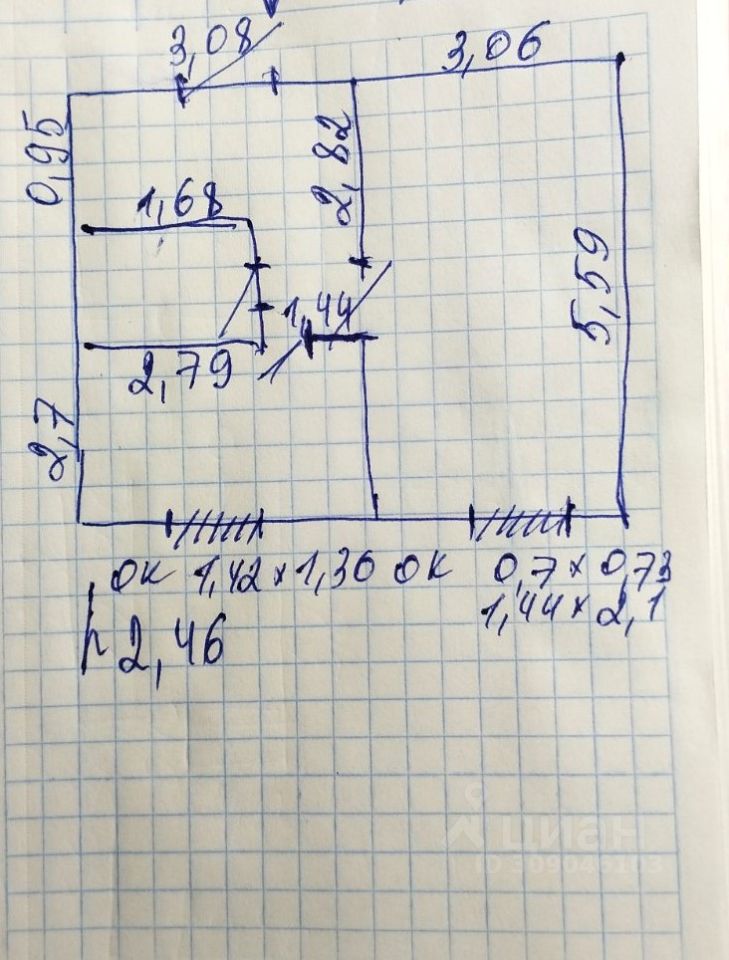 3,08
3,06
0,95
2,82
1,68
5,59
1,44
2,79
1
2,7
ОК 1,42 x 1,36 ОК 0,7 x 0,73
1,44 x 2,1
h 2,46
циан
ID 309046103